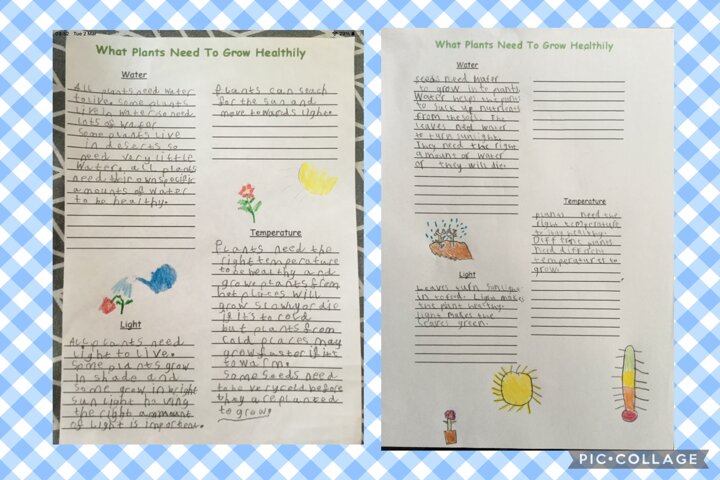 09:52 Tue 2 Mar
29%
What Plants Need To Grow Healthily
Water
All plants need water
to live. some plants
live in water so need
lots of water
Some plants live
in deserts so
need very little
water. all plants
need their own specific
amounts of water
to be healthy.
Light
All plants need
light to live.
Some plants grow
in shade and
some grow in bright
sun light having
the right ammount
of light is important.
Plants can seach
for the sun and
move towards light.
Temperature
Plants need the
right temperature
to be healthy and
grow plants from
hot places will
grow slowly or die
if it's to cold
but plants from
cold places may
grow faster if it
to warm.
Some seeds need
to be very cold before
they are planted
to grow.
What Plants Need To Grow Healthily
Water
seeds need water
to grow into plants
Water helps the plants
to suck up nutrients
from the soil. The
leaves need water
to turn sunlight.
They need the right
amount of water
or they will die.
Light
Leaves turn sunlight
in to food. Light makes
the plant healthy.
light makes the
leaves green.
Temperature
plants need the
right temperature
to stay healthy.
plants
need different
temperatures to
grow.
PIC•COLLAGE